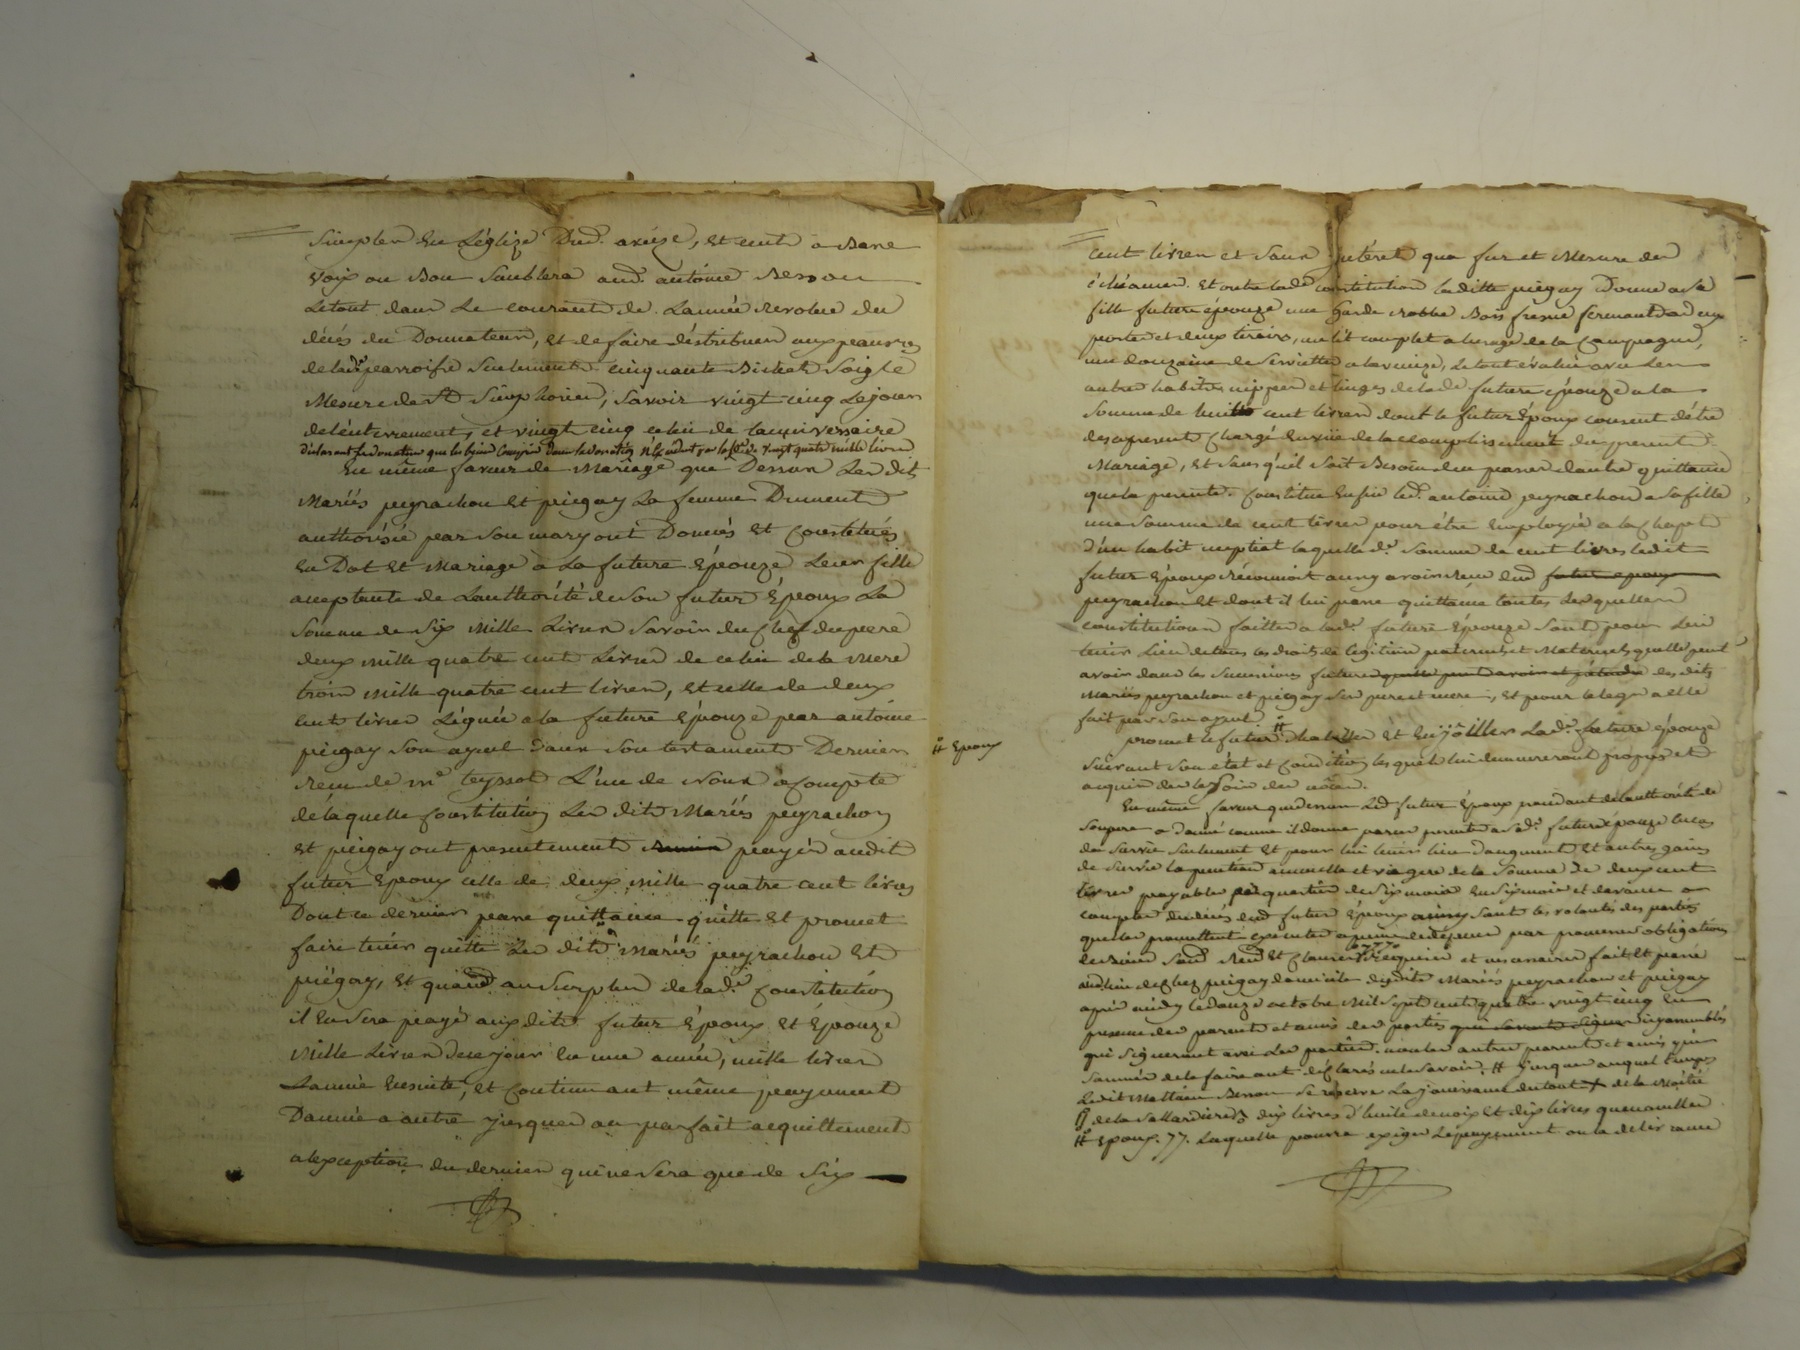 simples En L'églize Dud. avéze, et cent a Basse
voix ou Bon Semblera aud. antoine Besson
Letout dans Le courant de L'année Revolue du
décés du Donnateur, et de faire déstribuer aux peauvres
de lad.e parroisse Seulement cinquante Bichet Soigle
Mesure de St Simphorien, Savoir vingt cinq Le jour
de L'enterrement, et vingt cinq celui de L'anniversaire
déclarant led. donateur que les biens Compris dans la donation N'éxcedent pas la so.e de vingt quatre mille livres
En même faveur de Mariage que Dessus Les dits
Mariés peyrachon Et piégay La femme Dument
authorisée par Son mary ont Donnés Et Constitués
En Dot Et Mariage à La future Epouze Leur fille
acceptante de L'authorité de Son futur Epoux La
Somme de Six Mille Livres Savoir du Chef du pere
deux mille quatre cent Livres de celui de la Mere
trois Mille quatre cent livres, et celle de deux
cent livres Léguée a la future Epouze par antoine
piégay Son ayeul dans Son testament Dernier
Reçu de m.e teyssot L'un de Nous acompte
de laquelle Constitution Les dits Mariés peyrachon
Et piégay ont presentement payés audit
futur Epoux celle de deux mille quatre cent livres
Dont ce dernier passe quittance quitte Et promet
faire tenir quitte Les dits Mariés peyrachon Et
piégay, Et quand au Surplus de lad.e Constitution
il En Sera payé aux dits futur Epoux Et Epouze
Mille Livres de ce jour En une année, mille livres
L'année Ensuite, Et Continuant même payement
D'année a autre jusques au parfait acquittement
a l'exception du dernier qui ne Sera que de Six
cent livres et Sans Intéret qua fur et Mesure des
échéances. Et outre lad.e Constitution ladite piégay Donne a Sa
fille future épouze une Garde Robbe Bois fresne fermant a deux
portes et deux tiroirs, un lit complet a l'usage de la Campagne,
une douzaine de Serviettes a la venize, Le tout évalué avec Les
autres habits, nippes et linges de lad.e future épouze a la
Somme de huit cent livres dont le futur Epoux consent d'étre
des a present Chargé En vüe de l'accomplissement du present
Mariage, Et Sans qu'il Soit Besoin d'en passer d'autre quittance
que la presente. Constitue Enfin led. antoine peyrachon a Sa fille
une Somme de cent livres pour étre Employée a l'achapt
d'un habit nuptial laquelle d.e Somme de cent livres ledit
futur Epoux réconnoit aussy avoir reçu dud. futur epoux
peyrachon Et dont il lui passe quittance toutes Lesquelles
constitutions faittes a lad.e future Epouze Sont pour lui
tenir Lieu de tous les droits de legitime paternels et Maternels quelle peut
avoir dans les Successions futures des dits
Mariés peyrachon et piégay Ses pere et mere, Et pour le legs a elle
fait par Son ayeul.
promet le futur # habiller Et Enjoailler Lad.e future épouze
# Epoux
Suivant Son etat et Condition lesquels lui demeureront propres et
acquis des le Soir des nôces.
En même faveur que dessus Led. futur Epoux procédant de l'authorité de
Son pere a donné comme il donne par ces presentes a Sad.e future épouze En cas
de Survie Seulement Et pour lui tenir lieu d'augment Et autres gains
de Survie la pention annuelle et viagere de la Somme de deux cent
livres payable par quartier de Six mois En Six mois et d'avance a
compter du décés dud. futur Epoux ainsy Sont les volontés des parties
quelles promettent exécuter a peine de dépens par promesses obligations
de biens Soum. Ren. Et Clauses Requises et necessaires fait Et passé
au lieu de chez piégay domicile desdits Mariés peyrachon et piégay
après midy le douze octobre Mil Sept cent quatre vingt cinq En
presence des parents et amis des parties icy assemblés
qui Signeront avec Les parties. non les autres parents et amis qui
Sommés de le faire ont déClarés ne le Savoir. # jusques auquel temps
Ledit Mathieu Besson Se réserve La jouissance du tout + de la Moitié
de la Sallardiere dix livres d'huile de noix Et dix livres quenouilles
# Epoux. 77. Laquelle pourra exiger Le payement ou la delivrance